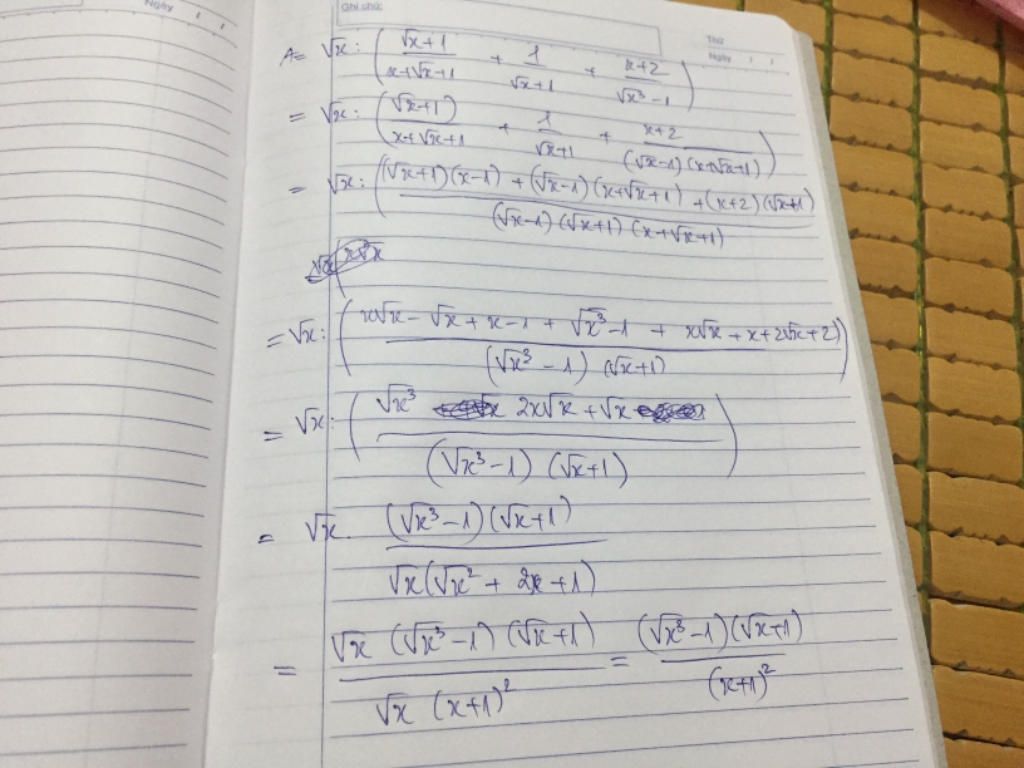 Ngày
Ghi chú:
Thứ
Ngày
A = √x : ( (√x+1)/(x+√x+1) + 1/(√x+1) + (x+2)/(√x³-1) )
= √x : ( (√x+1)/(x+√x+1) + 1/(√x+1) + (x+2)/((√x-1)(x+√x+1)) )
= √x : ( ((√x+1)(x-1) + (√x-1)(x+√x+1) + (x+2)(√x+1))/((√x-1)(√x+1)(x+√x+1))
= √x : ( (x√x - √x + x - 1 + √x³-1 + x√x + x + 2√x + 2)/((√x³ - 1)(√x+1)) )
= √x : ( (√x³ 2x√x + √x)/((√x³-1)(√x+1)) )
= √x . ((√x³-1)(√x+1))/(√x(√x² + 2x + 1))
= (√x (√x³-1)(√x+1))/(√x (x+1)²) = ((√x³-1)(√x+1))/((x+1)²)